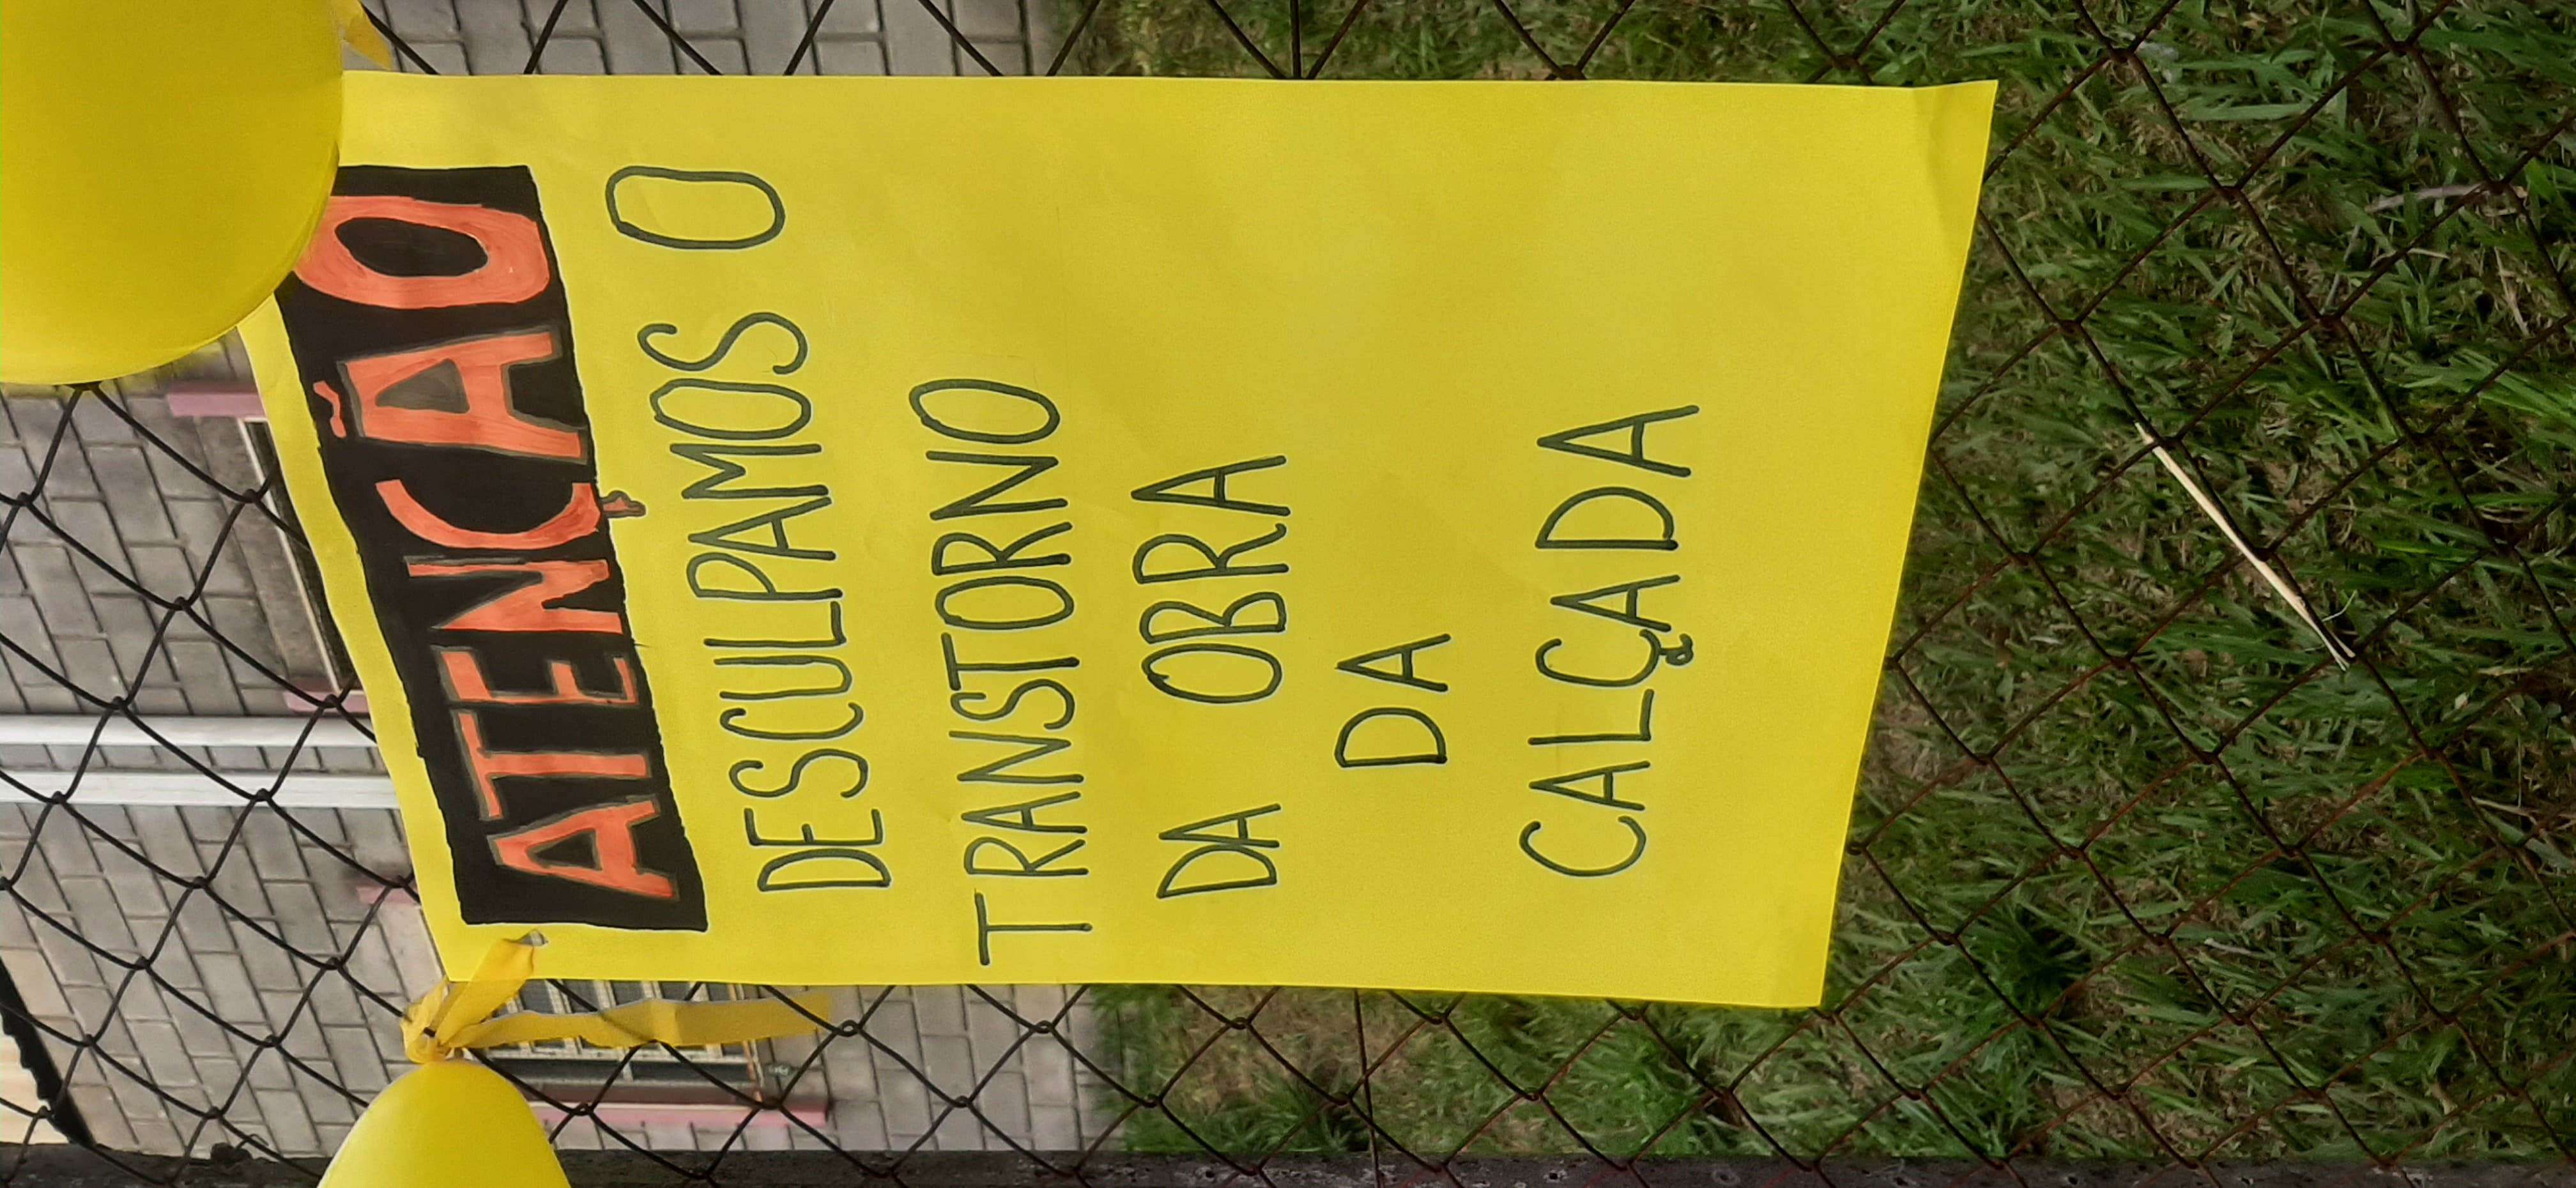 ATENÇÃO
DESCULPAMOS O
TRANSTORNO
DA OBRA
DA
CALÇADA